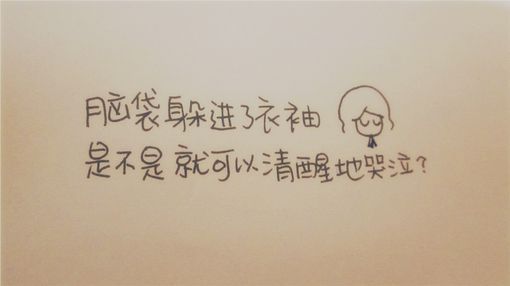 脑袋躲进了衣袖
是不是就可以清醒地哭泣？